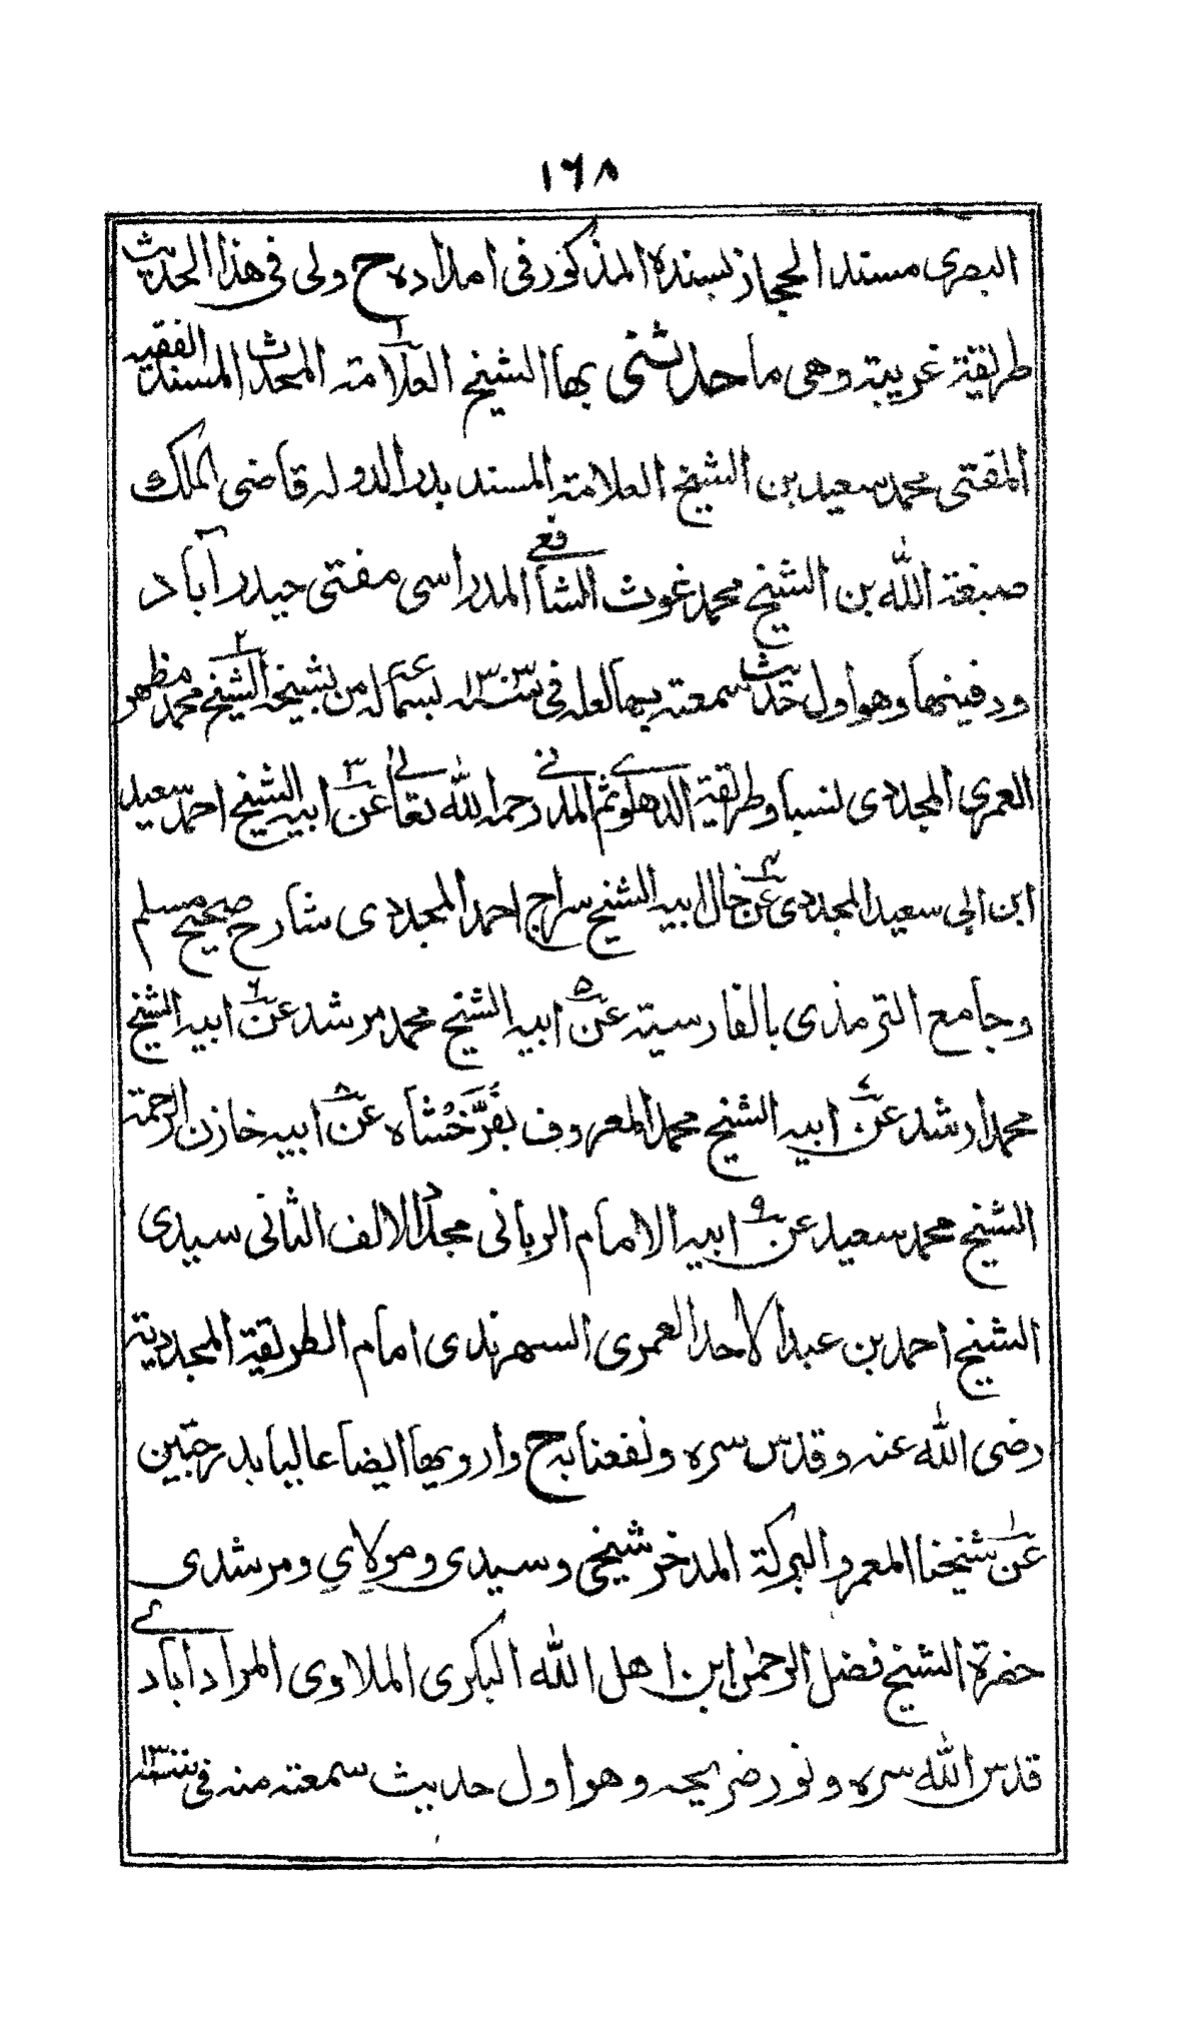 ١٦٨
البصرى مسند الحجاز بسنده المذكور فى امداده ح ولى فى هذا الحديث
طريقة غريبة وهى ما حدثنى بها الشيخ العلامة المحدث المسند الفقيه
المفتى محمد سعيد بن الشيخ العلامة المسند بدر الدوله قاضى الملك
صبغة الله بن الشيخ محمد غوث الشافعى المدراسى مفتى حيدرآباد
ودفينها وهو اول حديث سمعته بسماعه من شيخه الشيخ محمد مظهر
العمرى المجددى نسبا وطريقة الدهلوى ثم المدنى رحمه الله تعالى عن ابيه الشيخ احمد سعيد
ابن ابى سعيد المجددى عن خال ابيه الشيخ سراج احمد المجددى شارح صحيح مسلم
وجامع الترمذى بالفارسية عن ابيه الشيخ محمد مرشد عن ابيه الشيخ
محمد ارشد عن ابيه الشيخ محمد المعروف بفَرَّخْشاه عن ابيه خازن الرحمة
الشيخ محمد سعيد عن ابيه الامام الربانى مجدد الالف الثانى سيدى
الشيخ احمد بن عبد الاحد العمرى السهرندى امام الطريقة المجددية
رضى الله عنه وقدس سره ونفعنا به ح وارويها ايضا عاليا بدرجتين
عن شيخنا المعمر والبركة المدخر شيخى وسيدى ومولاي ومرشدى
حضرة الشيخ فضل الرحمن ابن اهل الله البكرى الملاوى المرادآبادى
قدس الله سره ونور ضريحه وهو اول حديث سمعته منه فى سنة